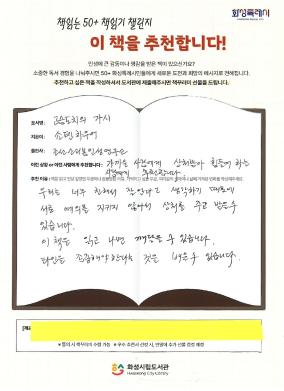 화성특례시
책읽는 50+ 책읽기 챌린지
이 책을 추천합니다!
인생에 큰 감동이나 깨달음을 받은 책이 있으신가요?
소중한 독서 경험을 나눠주시면 50+ 화성특례시민들에게 새로운 도전과 희망의 메시지로 전해집니다.
추천하고 싶은 책을 작성하셔서 도서관에 제출해주시면 책꾸러미 선물을 드립니다.
도서명: 고슴도치의 가시
지은이: 쇼펜하우어
출판사:
이런 상황 or 이런 사람에게 추천합니다: 가까운 사람에게 상처받아 힘들어 하는
사람에게 추천합니다
추천 이유
우리는 너무 친해서 잘 안다고 생각하기 때문에
서로 예의를 지키지 않아서 상처를 주고 받을 수
있습니다.
이 책은 읽고 나면 깨달을 수 있습니다.
타인을 소중해야 한다는 것을 배울 수 있습니다.
화성시립도서관
Hwaseong City Library